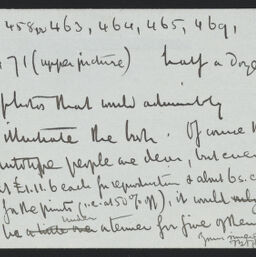 458, 463, 464, 465, 469,
471 (upper picture) half a Doze
photos that would admirably
illustrate the book. Of course the
autotype people are dear, but even
at £1.11.6 each for reproduction & about 6s.
for the prints (i.e. at 50% off), it would only
be a little over under a tenner for five of them
Yours